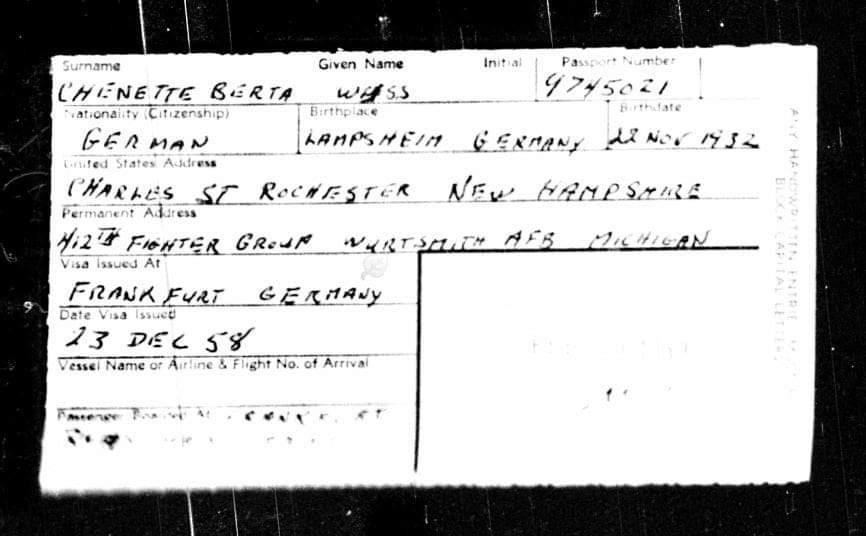 Surname Given Name Initial Passport Number
CHENETTE BERTA WEISS 9745021
Nationality (Citizenship) Birthplace Birthdate
GERMAN LAMPSHEIM GERMANY 22 NOV 1932
United States Address
CHARLES ST ROCHESTER NEW HAMPSHIRE
Permanent Address
412TH FIGHTER GROUP WURTSMITH AFB MICHIGAN
Visa Issued At
FRANKFURT GERMANY
Date Visa Issued
23 DEC 58
Vessel Name or Airline & Flight No. of Arrival
Passenger Boarded At
HANDWRITTEN ENTRIES
BLOCK CAPITAL LETTERS